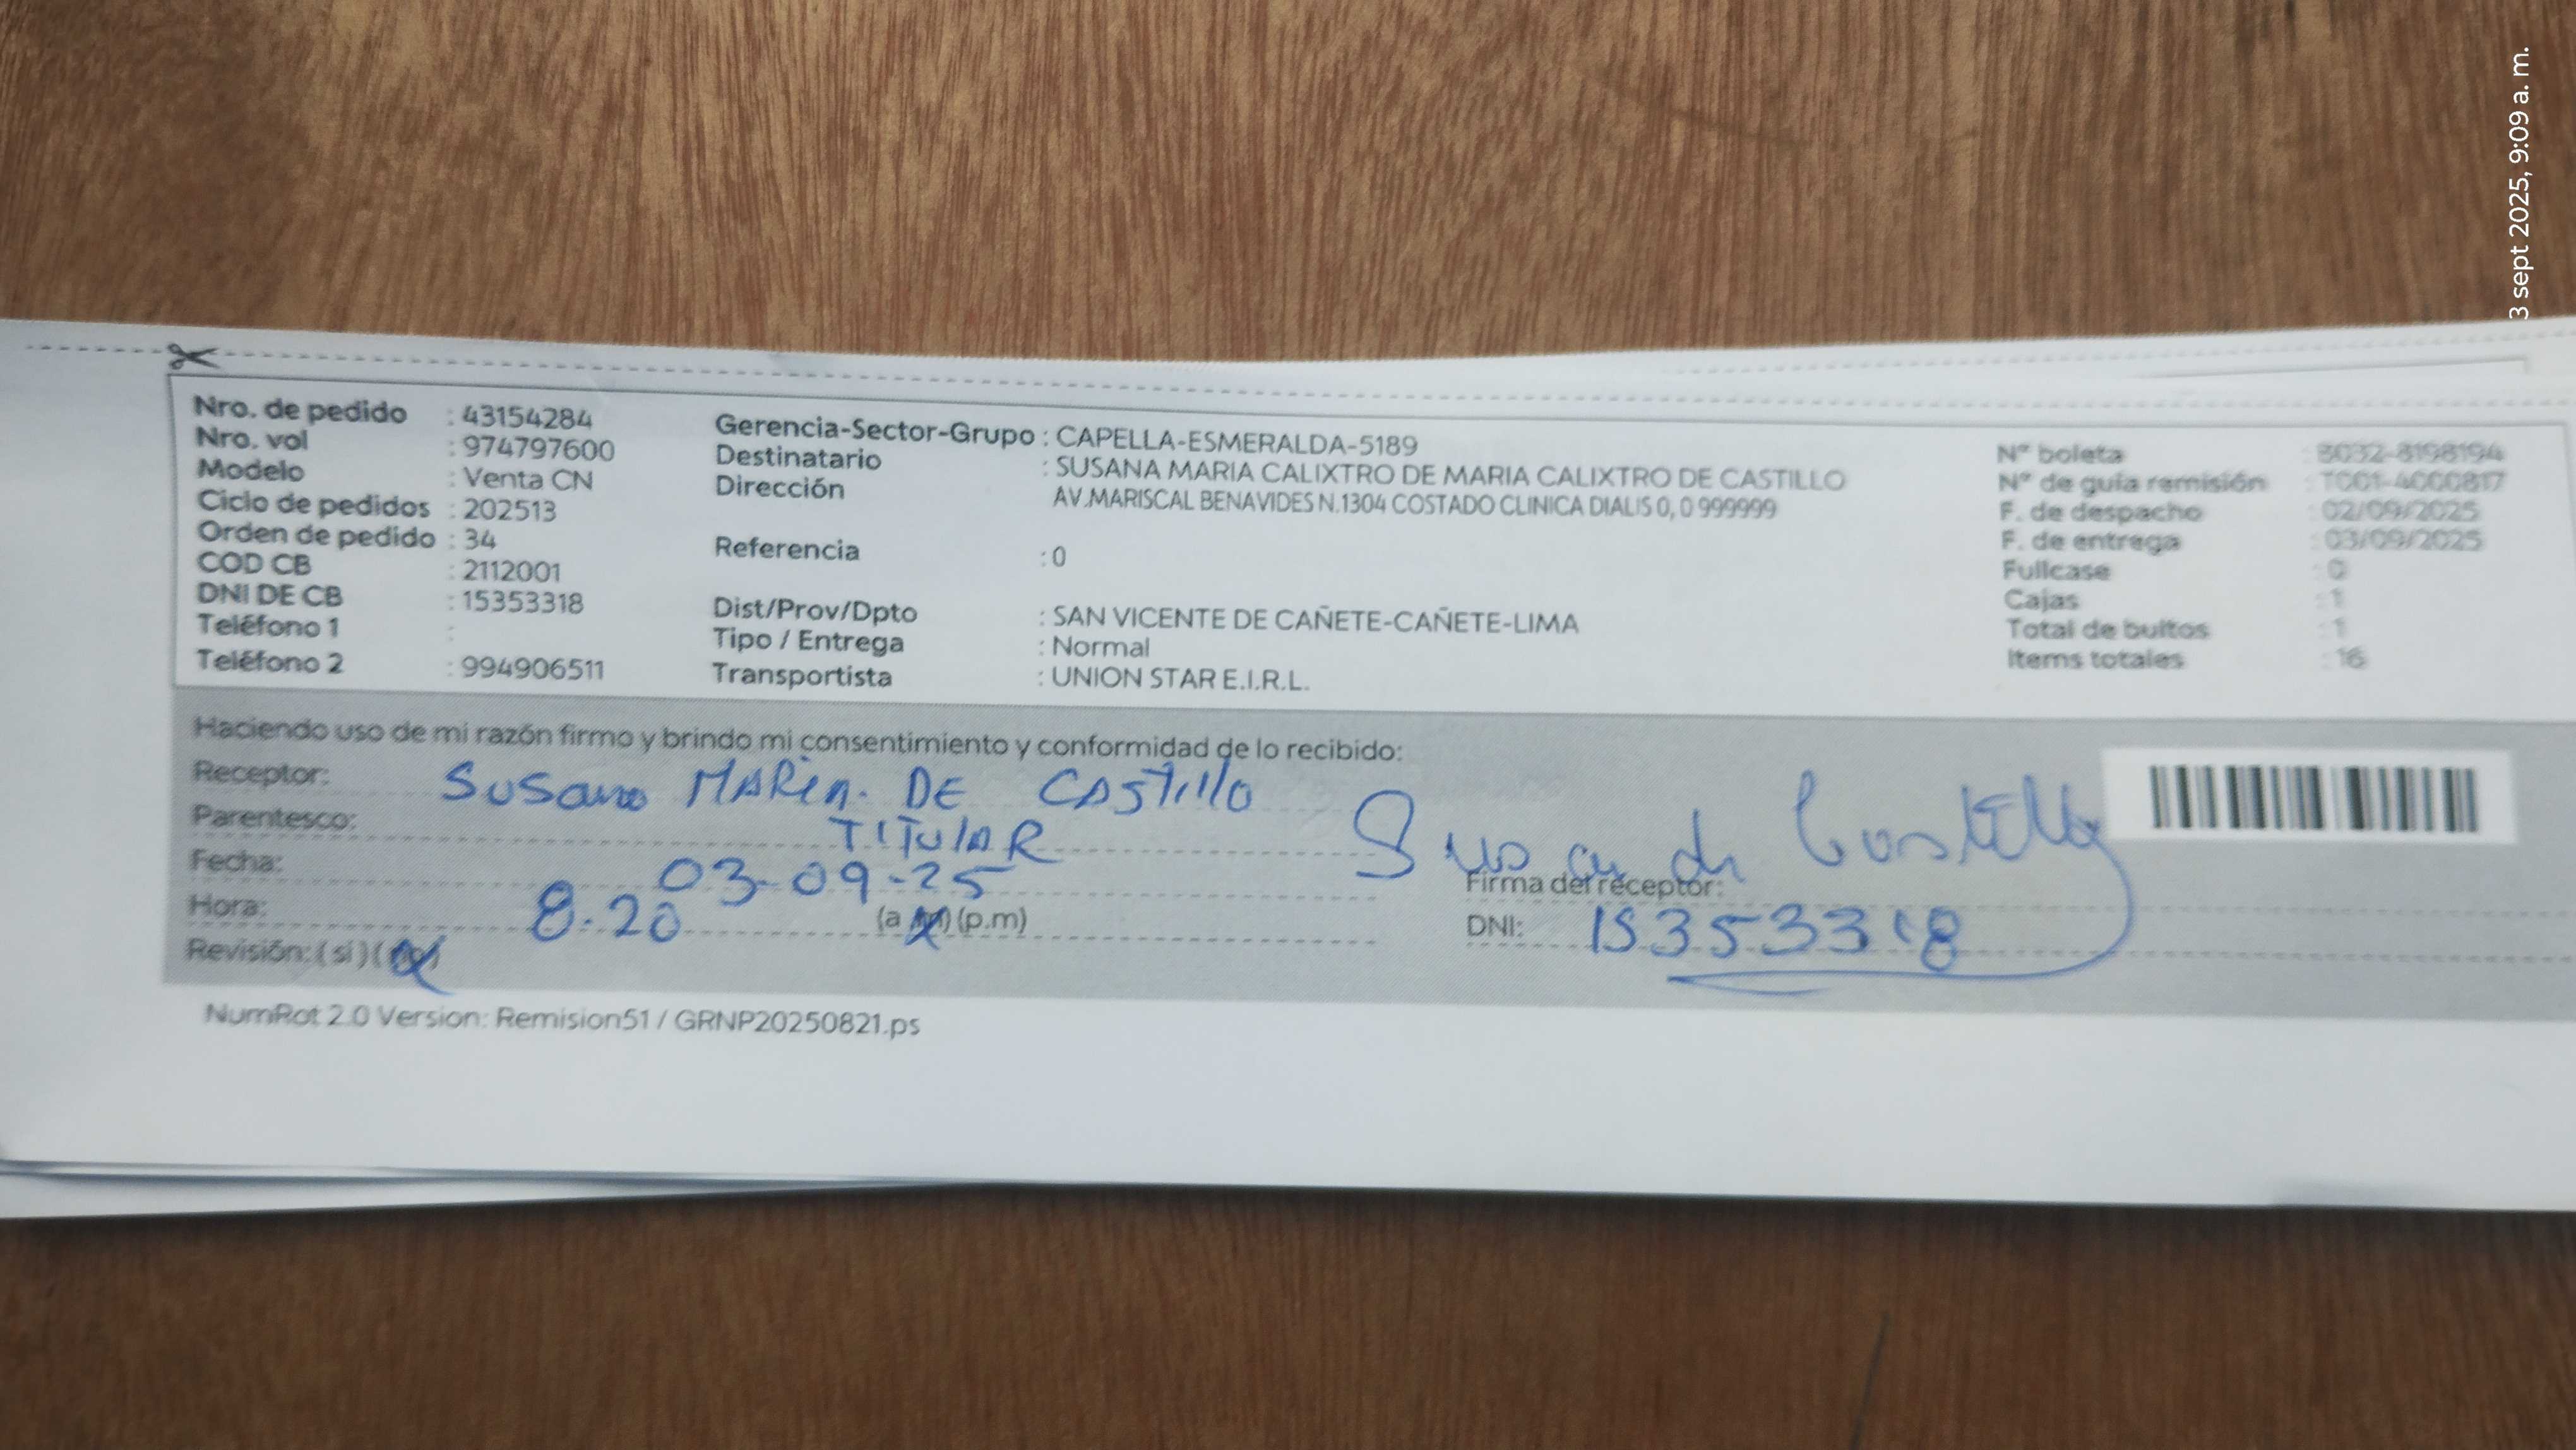 3 sept 2025, 9:09 a. m.
Nro. de pedido : 43154284
Nro. vol : 974797600
Modelo : Venta CN
Ciclo de pedidos : 202513
Orden de pedido : 34
COD CB : 2112001
DNI DE CB : 15353318
Teléfono 1 :
Teléfono 2 : 994906511
Gerencia-Sector-Grupo : CAPELLA-ESMERALDA-5189
Destinatario : SUSANA MARIA CALIXTRO DE MARIA CALIXTRO DE CASTILLO
Dirección AV.MARISCAL BENAVIDES N.1304 COSTADO CLINICA DIALIS 0, 0 999999
Referencia : 0
Dist/Prov/Dpto : SAN VICENTE DE CAÑETE-CAÑETE-LIMA
Tipo / Entrega : Normal
Transportista : UNION STAR E.I.R.L.
N° boleta : B032-8198194
N° de guía remisión : T001-4000817
F. de despacho : 02/09/2025
F. de entrega : 03/09/2025
Fullcase : 0
Cajas : 1
Total de bultos : 1
Items totales : 16
Haciendo uso de mi razón firmo y brindo mi consentimiento y conformidad de lo recibido:
Receptor: Susana MARIA. DE CASTILLO
Parentesco: TITULAR
Fecha: 03-09-25
Hora: 8.20 (a.m) (p.m)
Revisión: (si) (no)
Susana de Castillo
Firma del receptor:
DNI: 15353318
NumRot 2.0 Version: Remision51 / GRNP20250821.ps